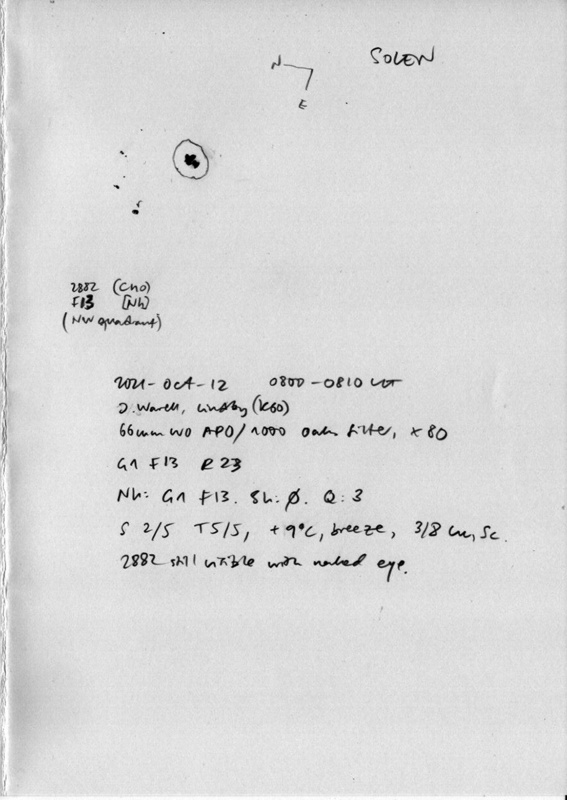 SOLEN
N
E
2882 (Cho)
F13 [Nh]
(NW quadrant)
2021-Oct-12 0800-0810 UT
J. Warell, Lindby (K60)
66mm WO APO/1000 Oaks filter, x80
G1 F13 R23
Nh: G1 F13. Sh: Ø. Q: 3
S 2/5 T5/5, +9°C, breeze, 3/8 Cu, Sc.
2882 still visible with naked eye.